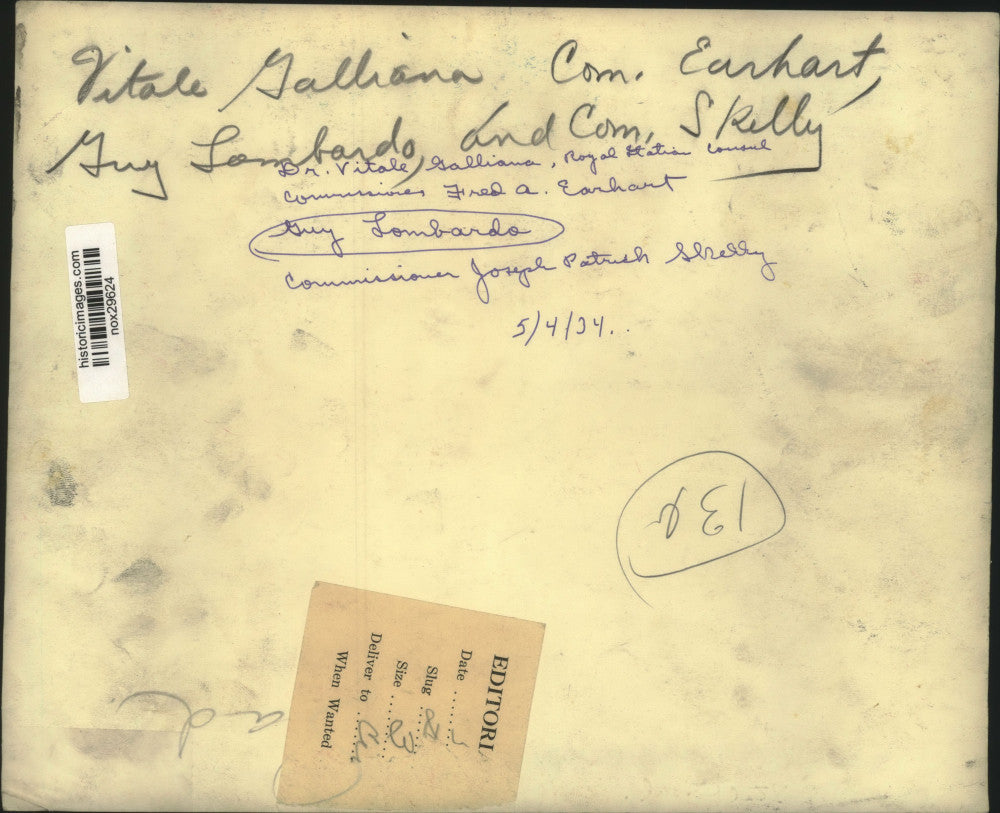 Vitale Galliana Com. Earhart,
Guy Lombardo, and Com. Skelly
Dr. Vitale Galliana, Royal Italian Consul
Commissioner Fred A. Earhart
Guy Lombardo
Commissioner Joseph Patrick Skelly
5/4/34..
historicimages.com
nox29624
13
EDITORI
Date
Slug
Size
Deliver to
When Wanted